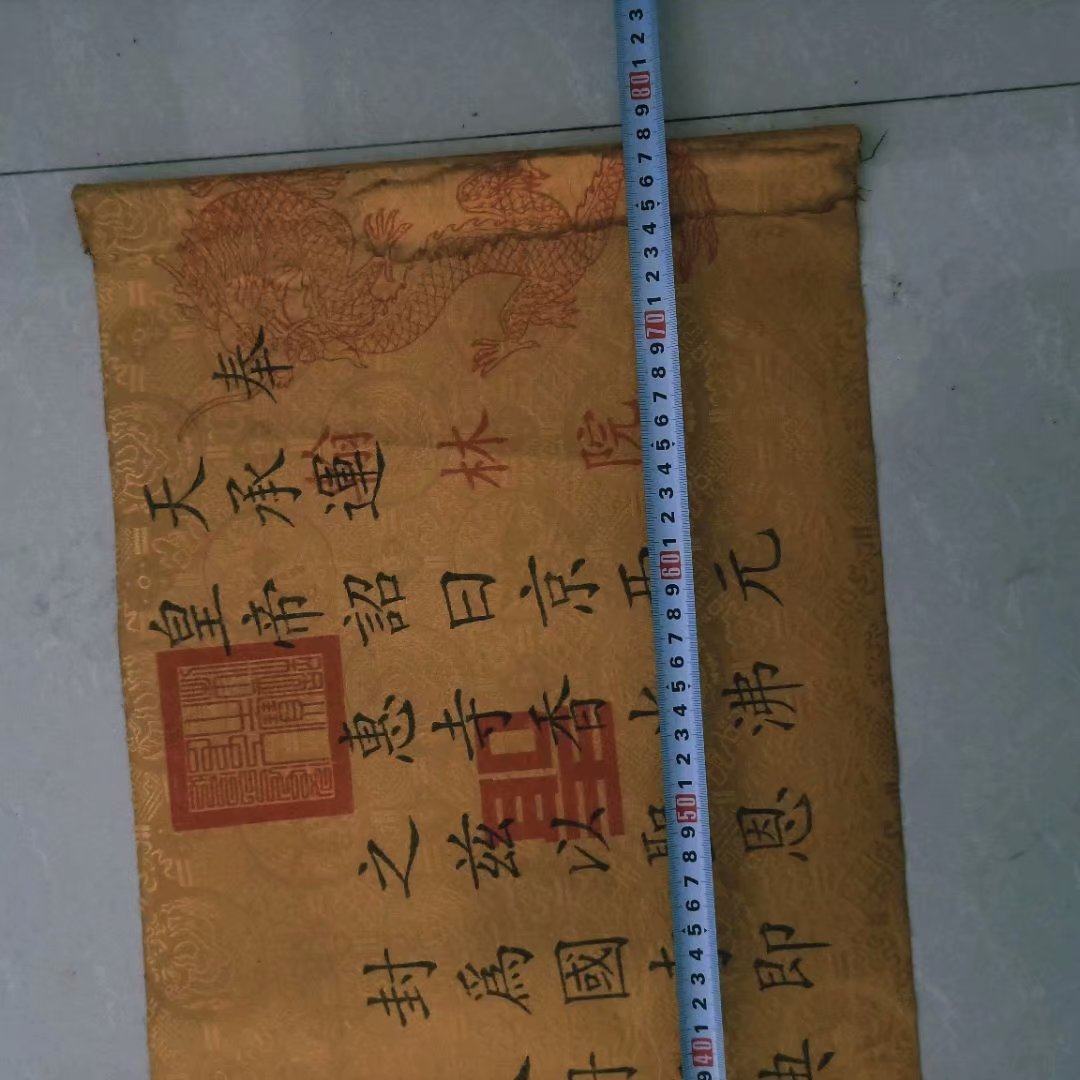 奉
天承運
皇帝詔曰京元
惠寺香沸
之兹以恩
封爲國即
翰林院
聖
9 40 1 2 3 4 5 6 7 8 9 50 1 2 3 4 5 6 7 8 9 60 1 2 3 4 5 6 7 8 9 70 1 2 3 4 5 6 7 8 9 80 1 2 3